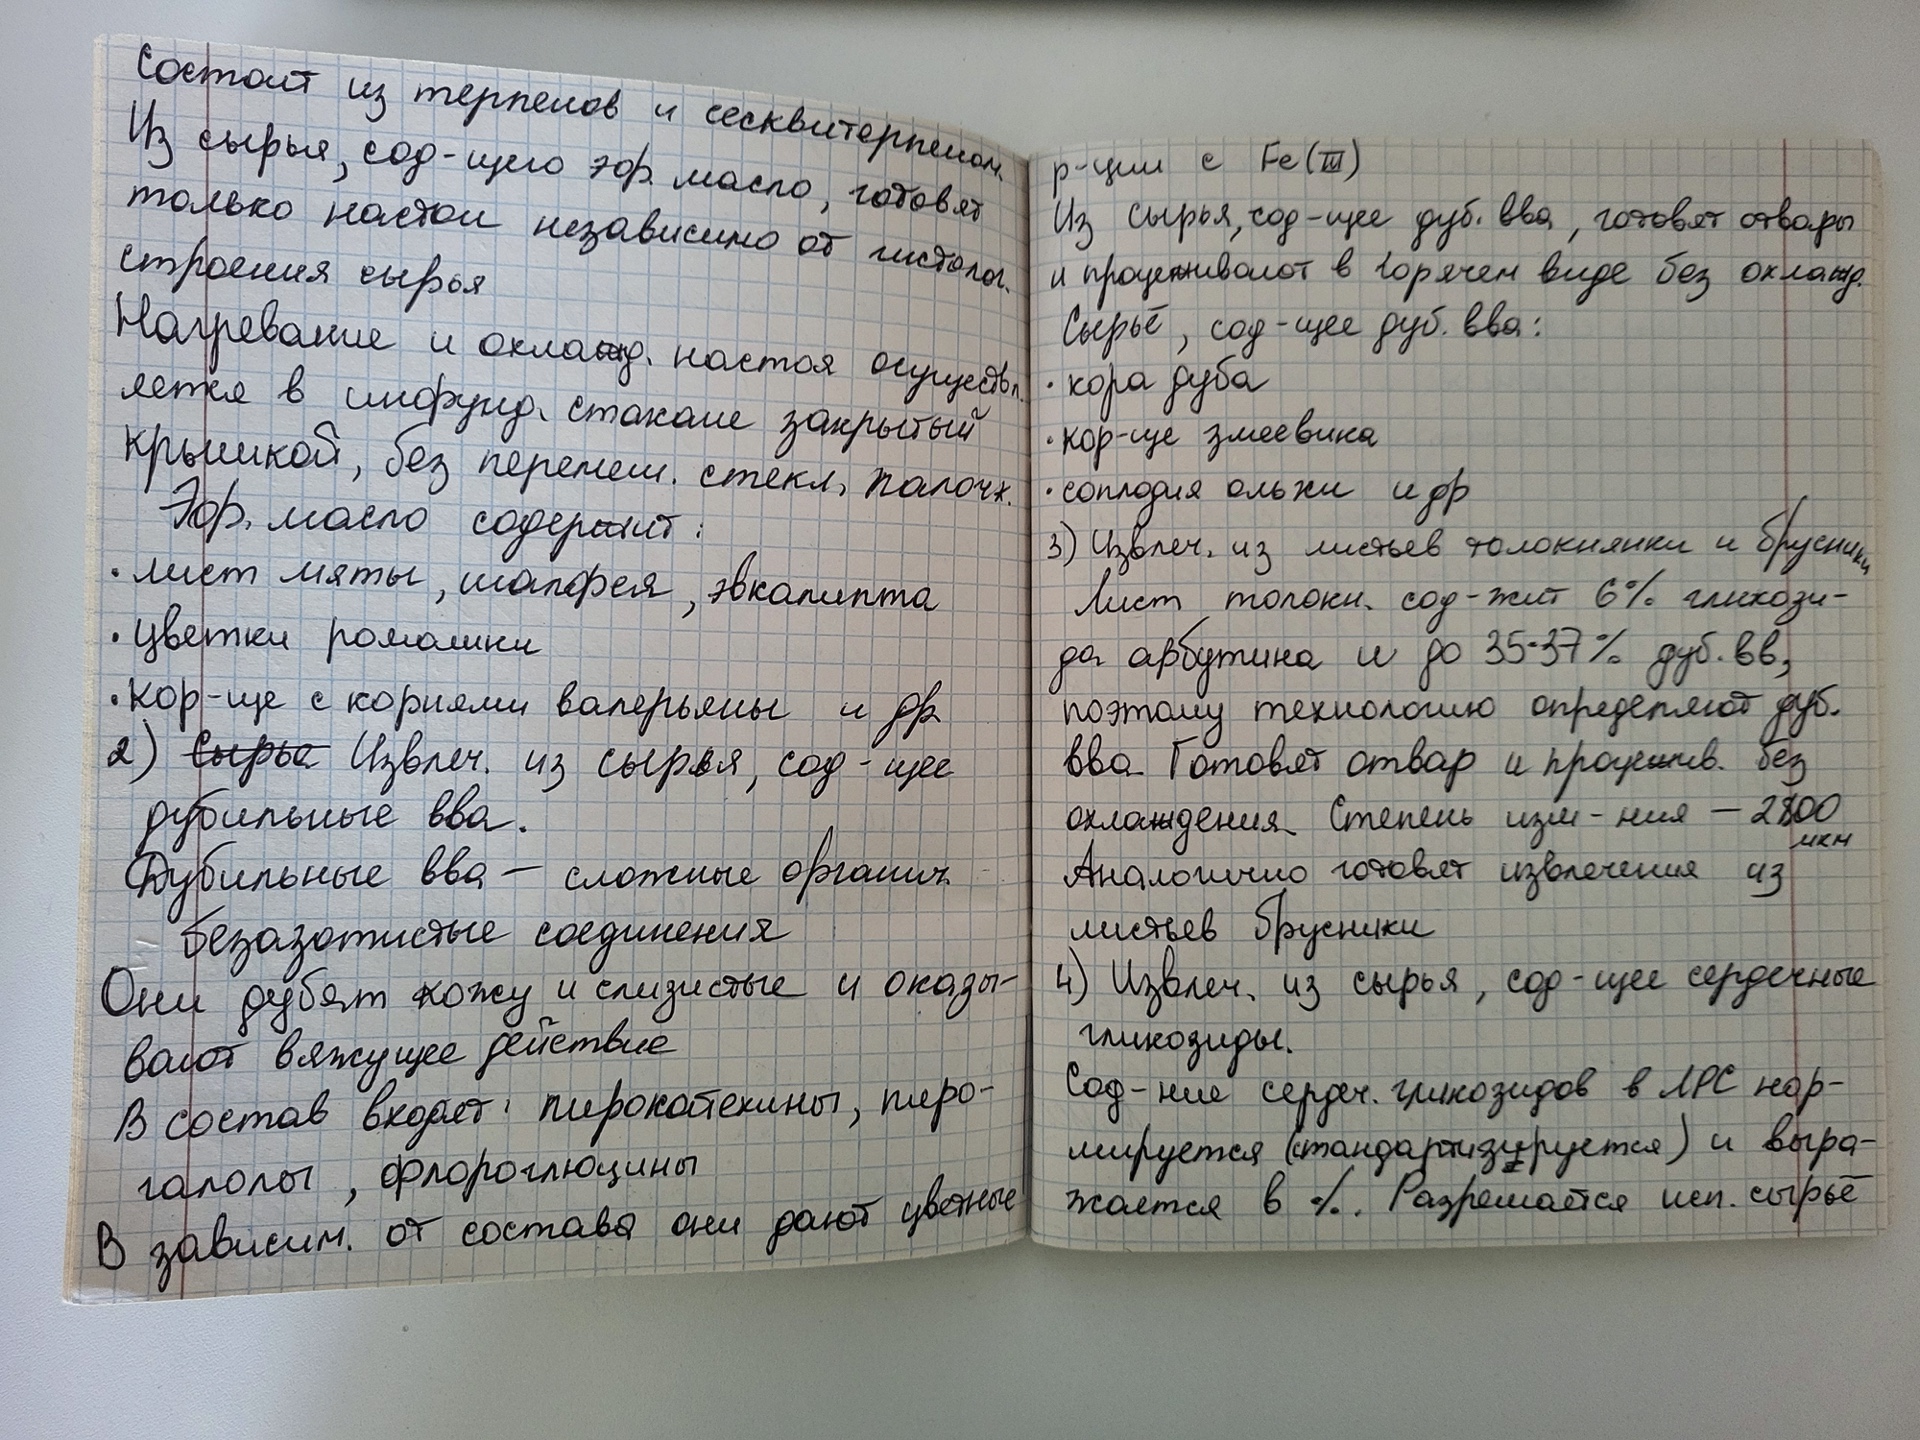 Состоит из терпенов и сесквитерпенов.
Из сырья, сод-щего эфр. масло, готовят
только настои независимо от гистолог.
строения сырья
Нагревание и охлажд. настоя осуществл
яется в инфунд. стакане закрытый
крышкой, без перемеш. стекл. палочк.
Эфр. масло содержит:
· лист мяты, шалфея, эвкалипта
· цветки ромашки
· кор-ще с корнями валерьяны и др
2) Сырье Извлеч. из сырья, сод-щее
дубильные вва.
Дубильные вва — сложные органич.
безазотистые соединения
Они дубят кожу и слизистые и оказы-
вают вяжущее действие
В состав входят: пирокатехины, пиро-
галолы, флороглюцины
В зависим. от состава они дают цветные
р-ции с Fe(III)
Из сырья, сод-щее дуб. вва, готовят отвары
и процеживают в горячем виде без охлажд.
Сырьё, сод-щее дуб. вва:
· кора дуба
· кор-ще змеевика
· соплодия ольхи и др
3) Извлеч. из листьев толокнянки и брусники
Лист толокн. сод-жит 6% гликози-
да арбутина и до 35-37% дуб. вв,
поэтому технологию определяют дуб.
вва. Готовят отвар и процежив. без
охлаждения. Степень изм-ния — 2800
мкм
Аналогично готовят извлечения из
листьев брусники
4) Извлеч. из сырья, сод-щее сердечные
гликозиды.
Сод-ние сердеч. гликозидов в ЛРС нор-
мируется (стандартизируется) и выра-
жается в %. Разрешается исп. сырьё